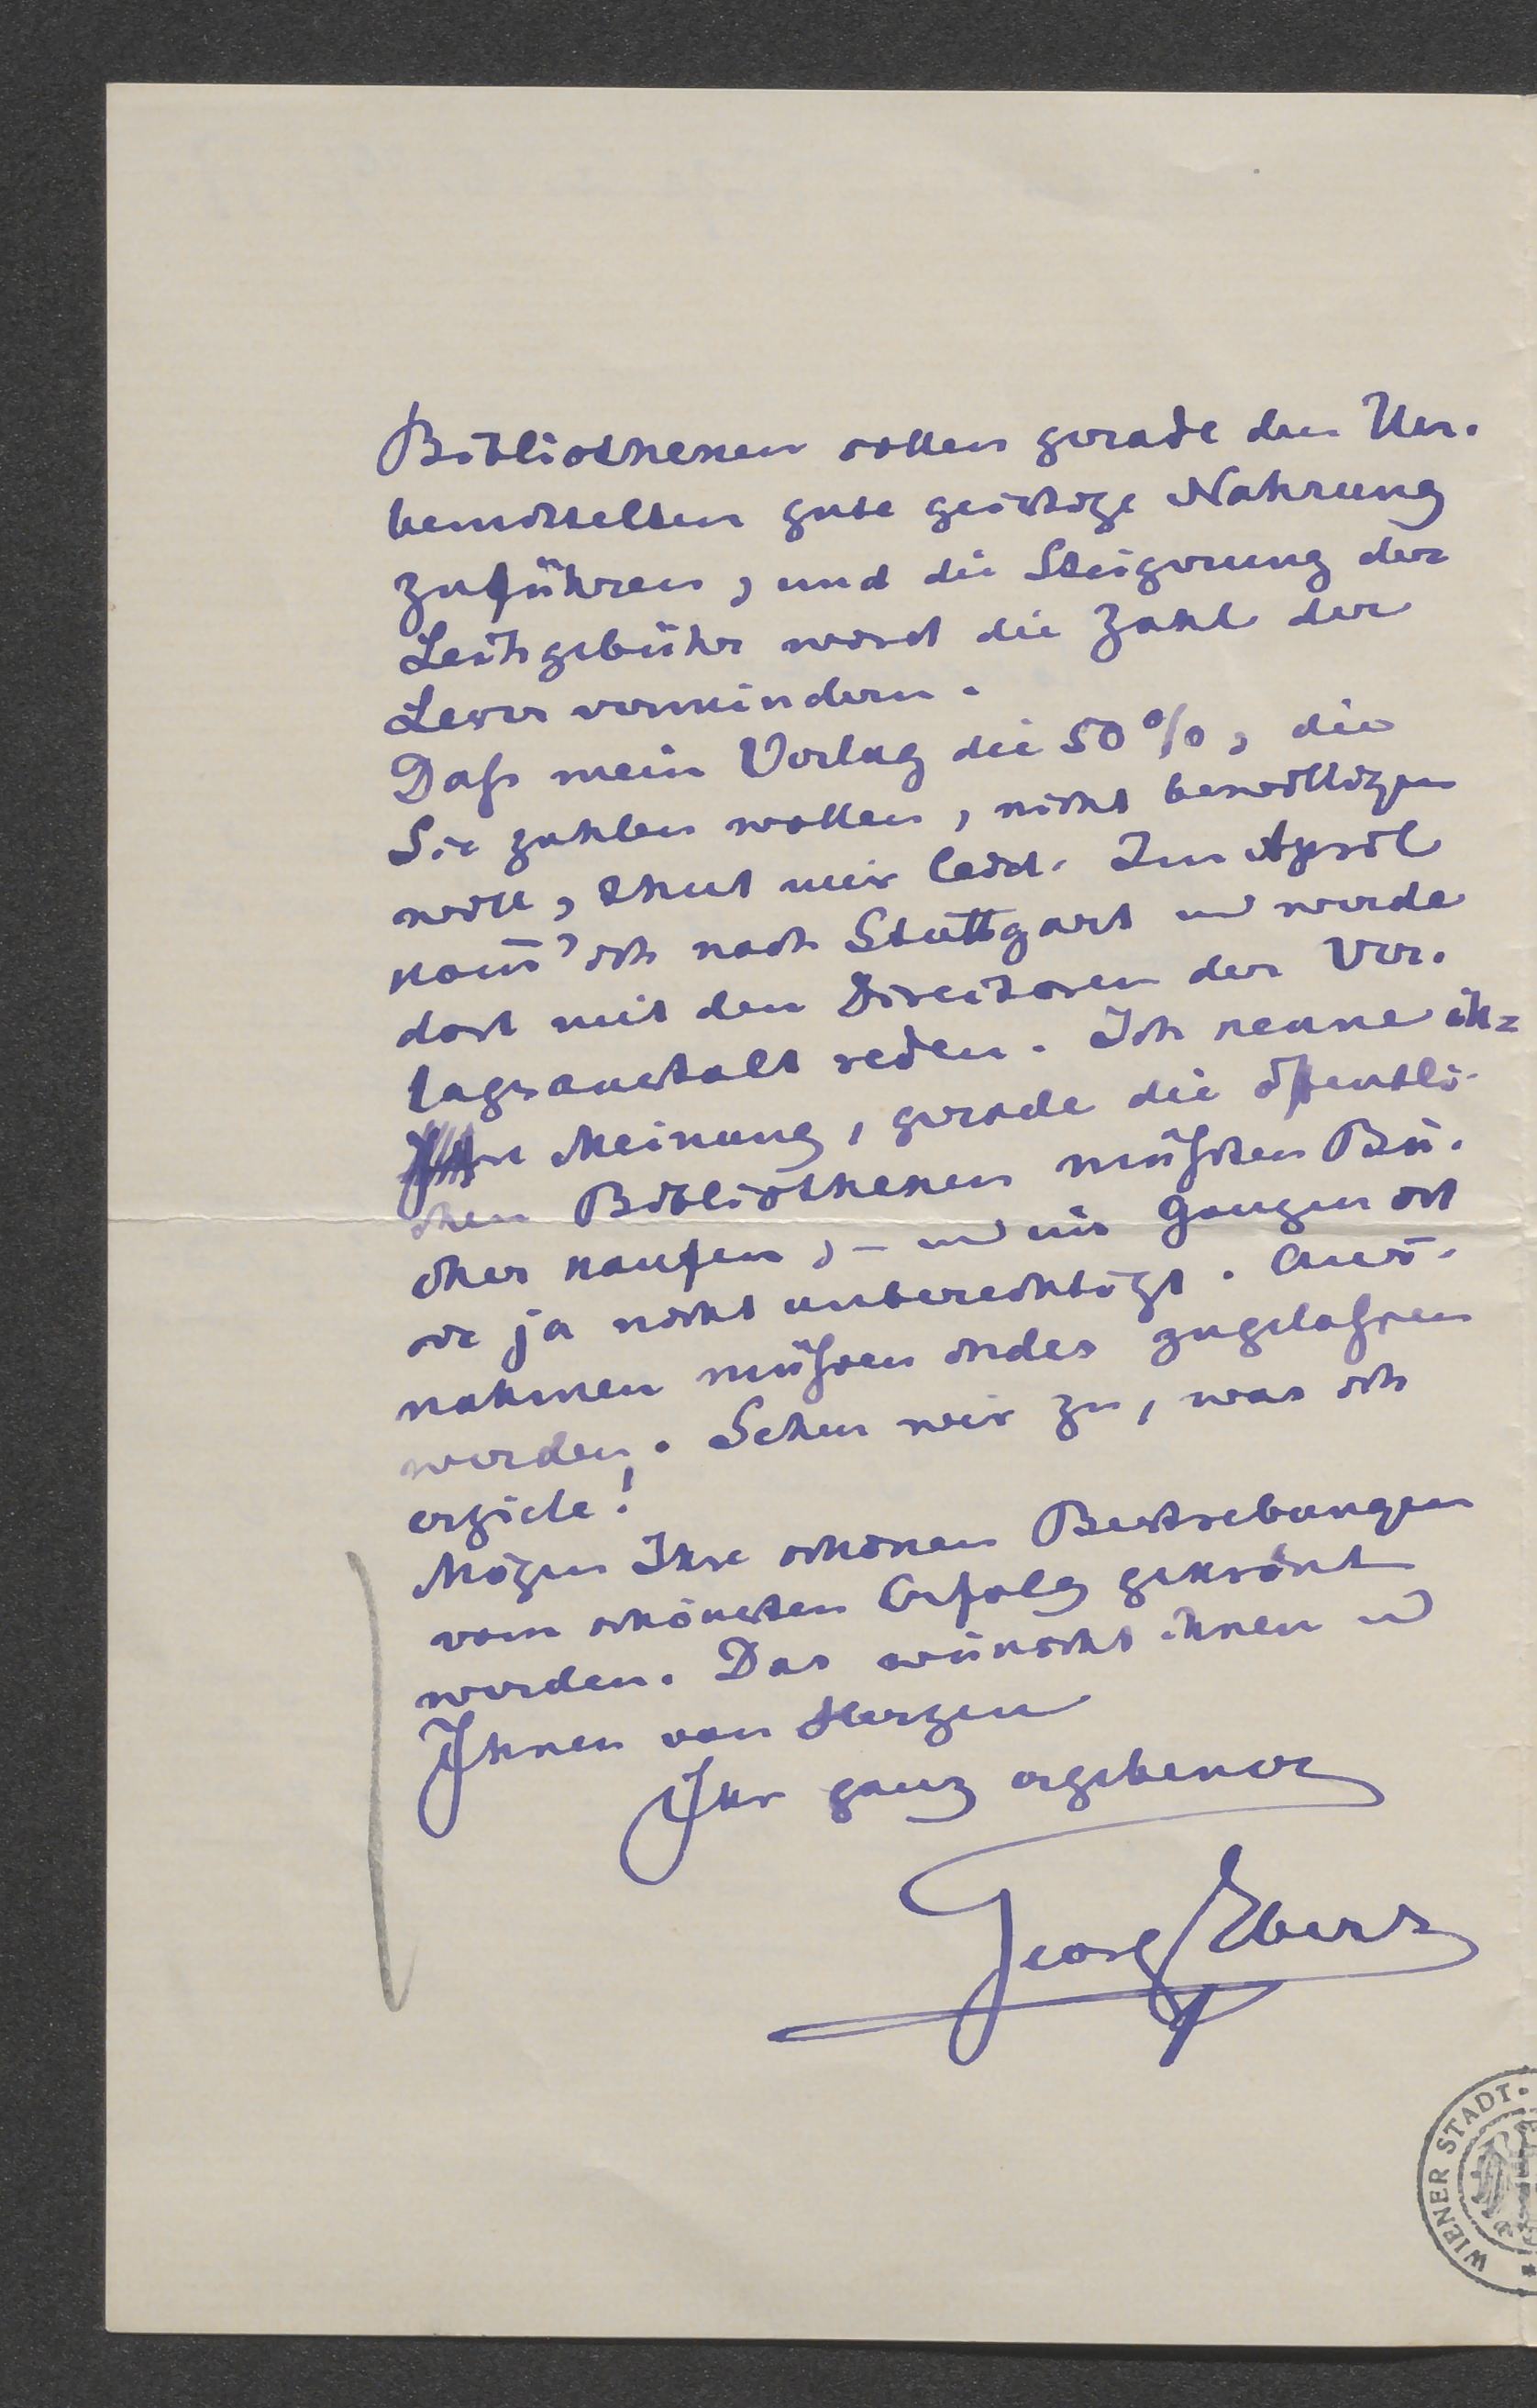 Bibliotheken sollen gerade den Un-
bemittelten gute geistige Nahrung
zuführen, und die Steigerung der
Leihgebühr wird die Zahl der
Leser vermindern.
Daß mein Verlag die 50%, die
Sie zahlen wollen, nicht bewilligen
will, thut mir leid. Im April
kom̄' ich nach Stuttgart und werde
dort mit den Directoren der Ver-
lagsanstalt reden. Ich kenne ih-
re Meinung, gerade die öffentli-
chen Bibliotheken müßten Bü-
cher kaufen, – und im Ganzen ist
sie ja nicht unberechtigt. Aus-
nahmen müßen indes zugelaßen
werden. Sehen wir zu, was ich
erziele!
Mögen Ihre schönen Bestrebungen
vom schönsten Erfolg gekrönt
werden. Das wünscht ihnen und
Ihnen von Herzen
Ihr ganz ergebener
Georg Ebers
WIENER STADT-